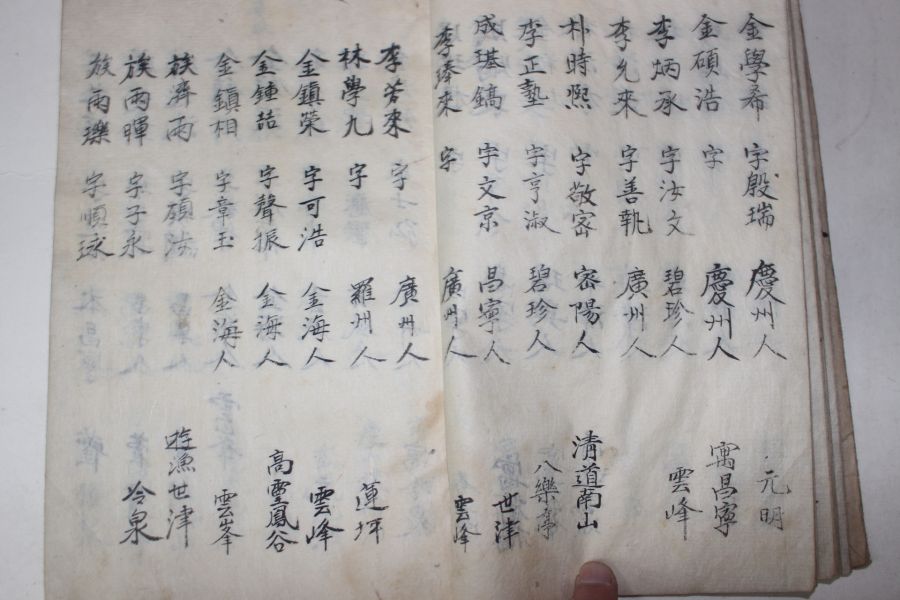 金學希 字殷瑞 慶州人 元明
金碩浩 字 慶州人 寓昌寧
李炳承 字汝文 碧珍人 雲峰
李允來 字善執 廣州人
朴時熙 字敬宻 宻陽人 清道南山
李正塾 字亨淑 碧珍人 八樂亭
成璂鎬 字文京 昌寧人 世津
李 來 字 廣州人 雲峰
李芳來 字士 廣州人
林學九 字 羅州人 蓮坪
金鎮榮 字可浩 金海人 雲峰
金鍾喆 字聲振 金海人 高靈鳳谷
金鎮相 字章玉 金海人 雲峯
族濟雨 字碩 遊漁世津
族雨暉 字子永 冷泉
族雨瓅 字順球